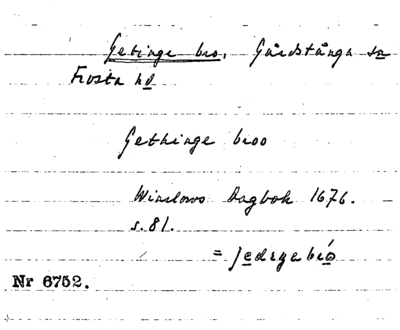 Getinge bro, Gårdstånga sn
Frosta hd
Gethinge broo
Winslows Dagbok 1676.
s. 81.
= jedrga bró
Nr 6752.